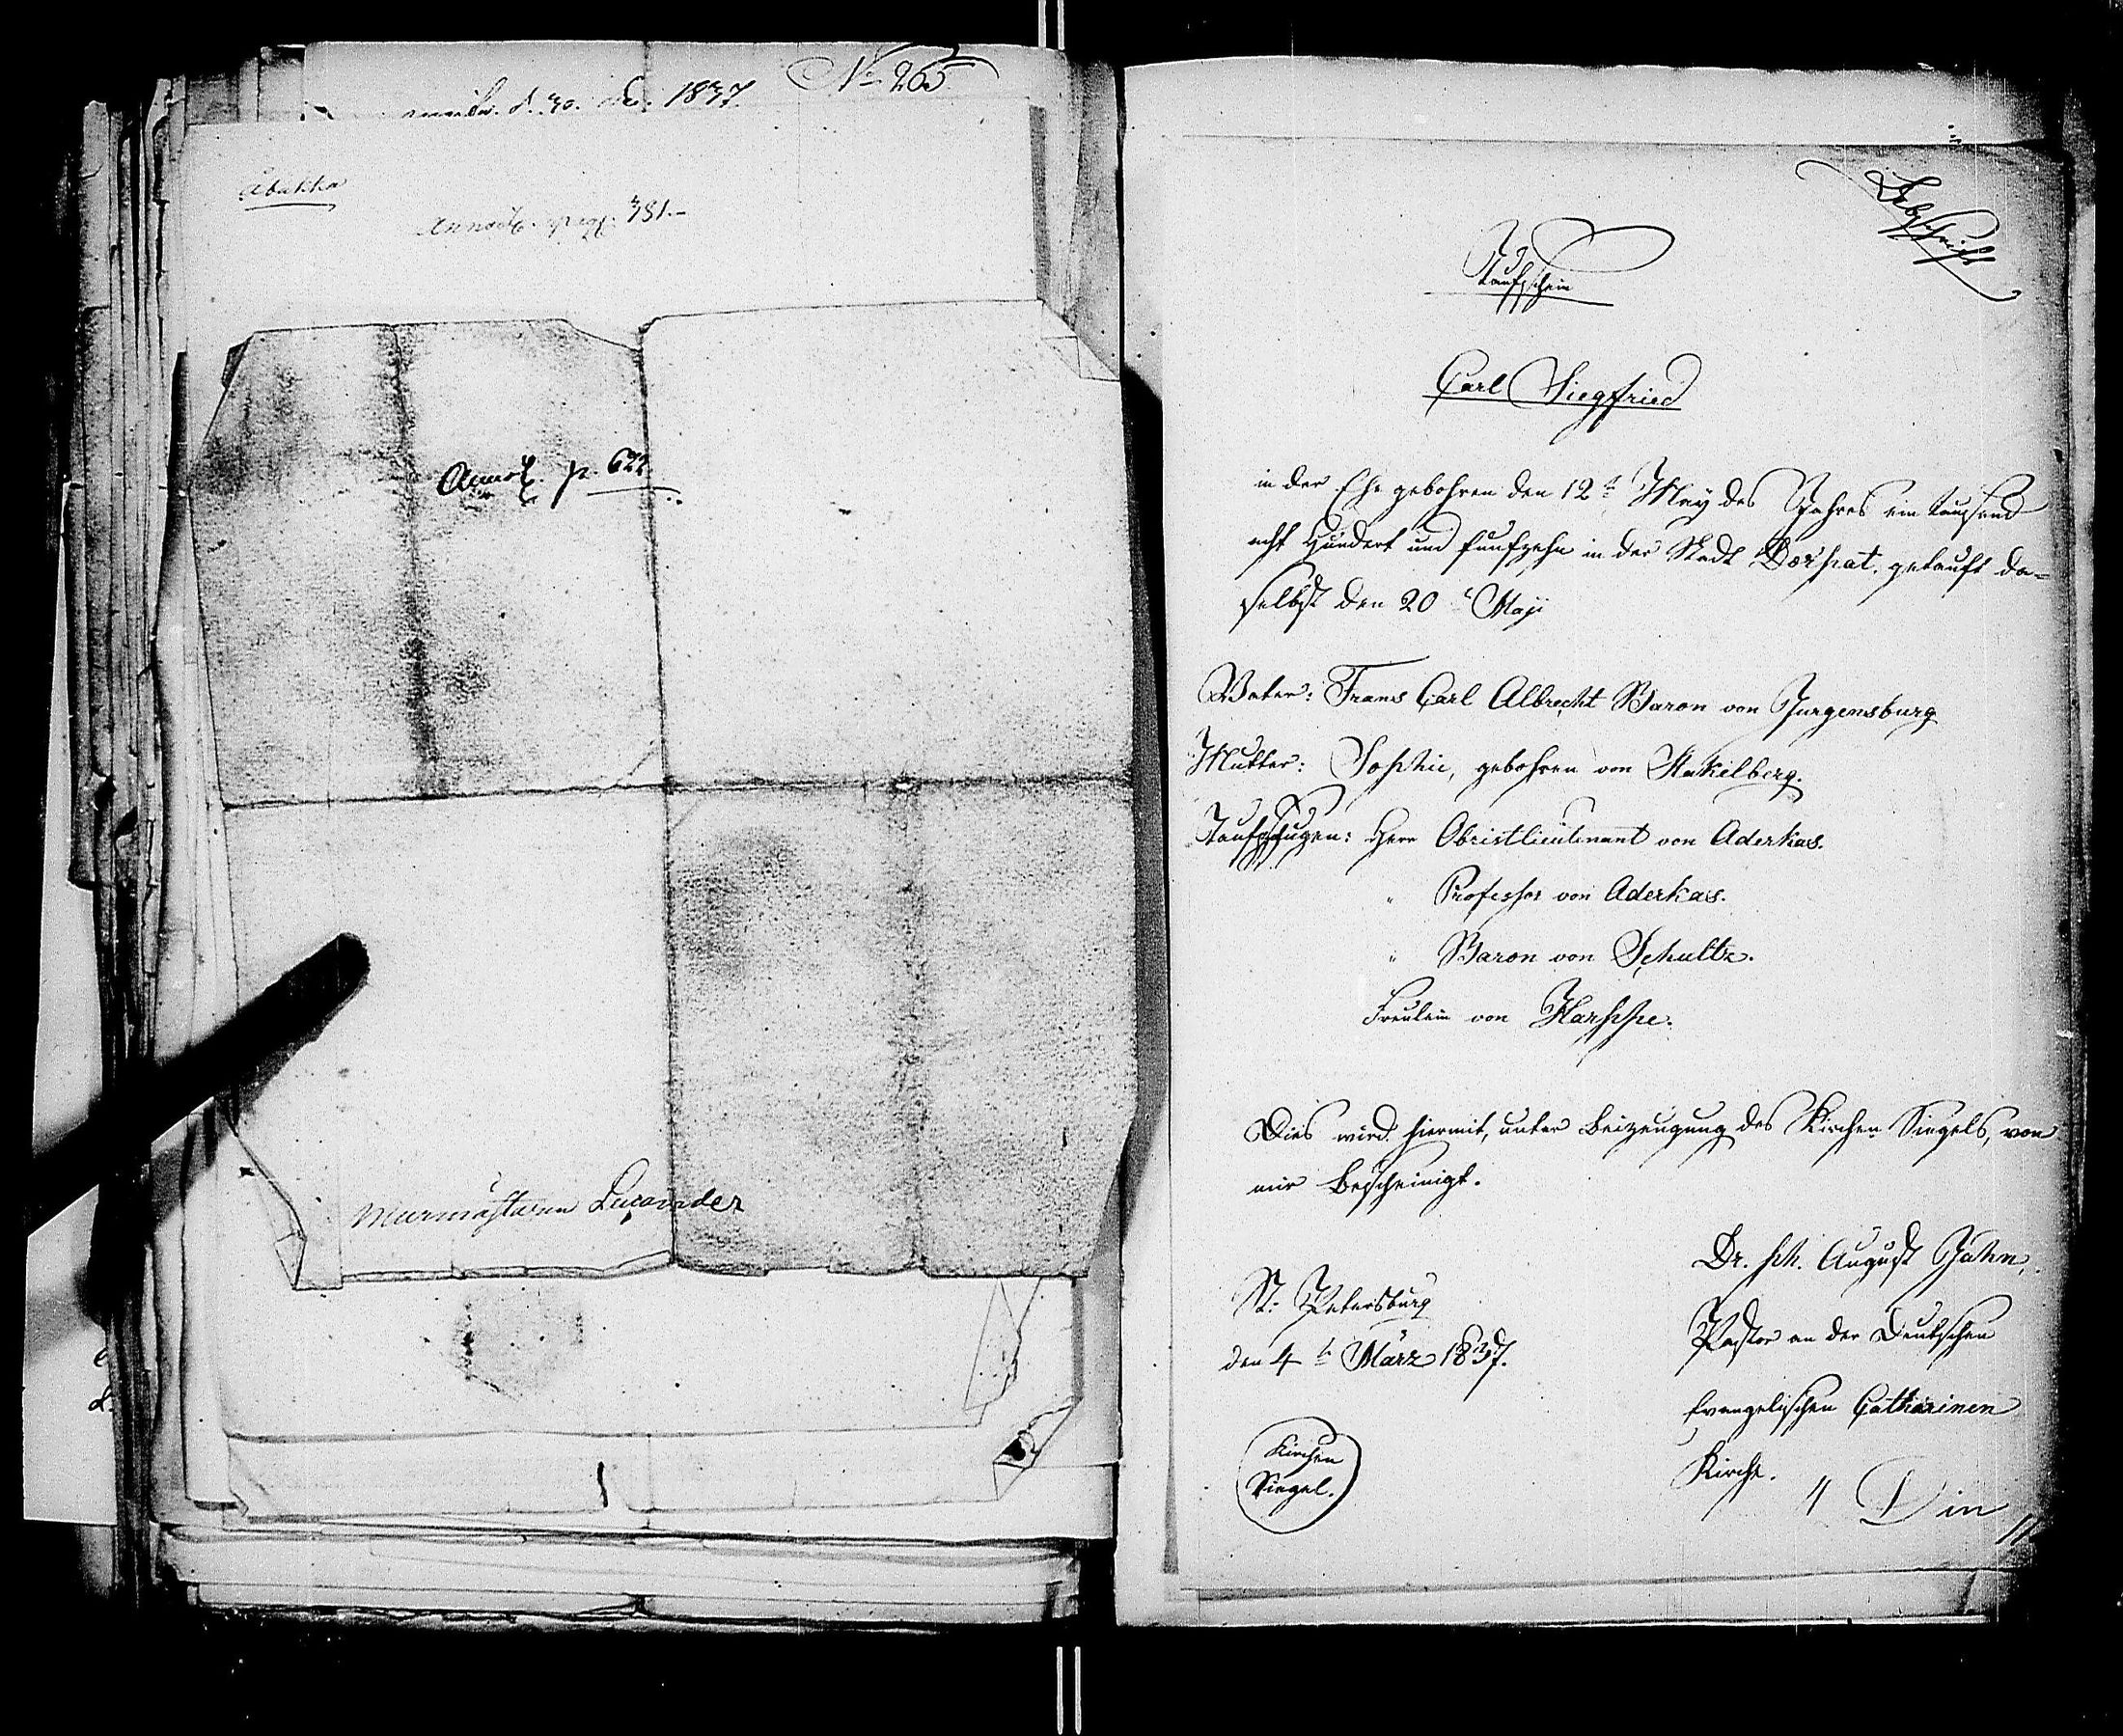 d. 30. 1837.
No 265.
Åbukka
Annot. pag. 381.
Annot. p. 622
Murmästaren Lucander
Abschrift
Taufschein
Carl Siegfried
in der Ehe gebohren den 12t May des Jahres ein tausend
acht Hundert und funfzehn in der Stadt Dorpat. getauft da=
selbst den 20t Maji
Vater: Frans Carl Albrecht Baron von Jurgensburg
Mutter: Sophie, gebohren von Stakelberg.
Taufzeugen: Herr Obristlieutenant von Aderkas.
" Professor von Aderkas.
" Baron von Schultz.
Freulein von Harppe.
Dies wird hiermit, unter Beizeugung des Kirchen Siegels, von
mir bescheinigt.
Dr. ph. August Jahn.
St. Petersburg
Pastor an der Deutschen
den 4t März 1837.
Evangelischen Catharinen
Kirche.
Kirchen
Siegel.